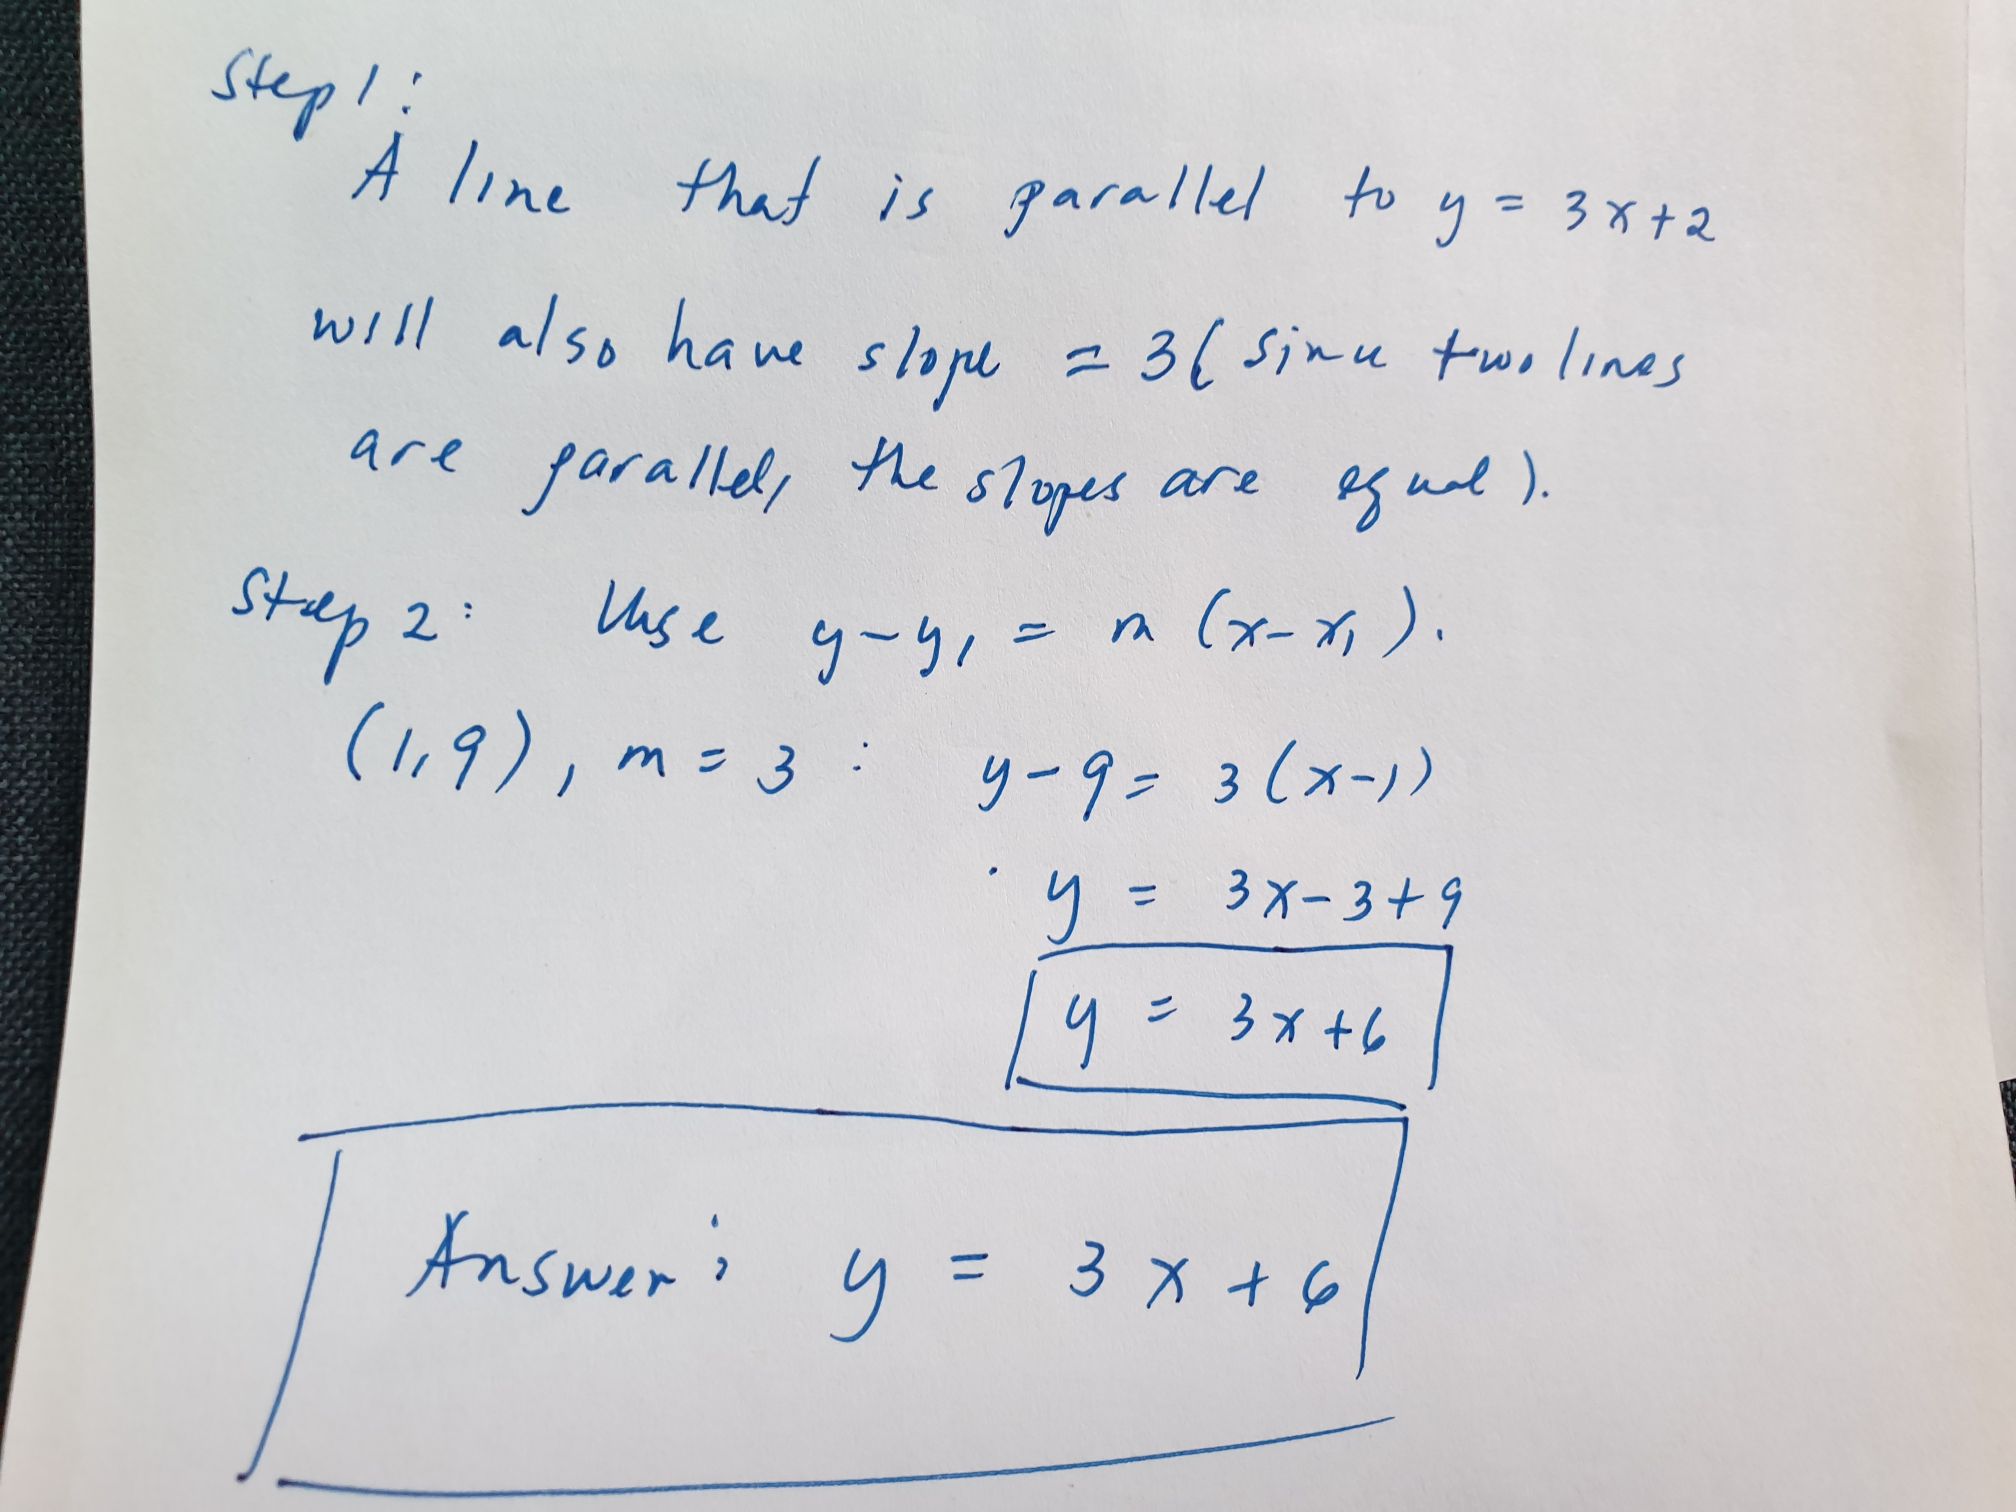 Step 1:
A line that is parallel to y = 3x+2
will also have slope = 3 (since two lines
are parallel, the slopes are equal).
Step 2: Use y-y₁ = m (x-x₁).
(1,9), m = 3 : y-9 = 3(x-1)
y = 3x-3+9
y = 3x+6
Answer: y = 3x+6